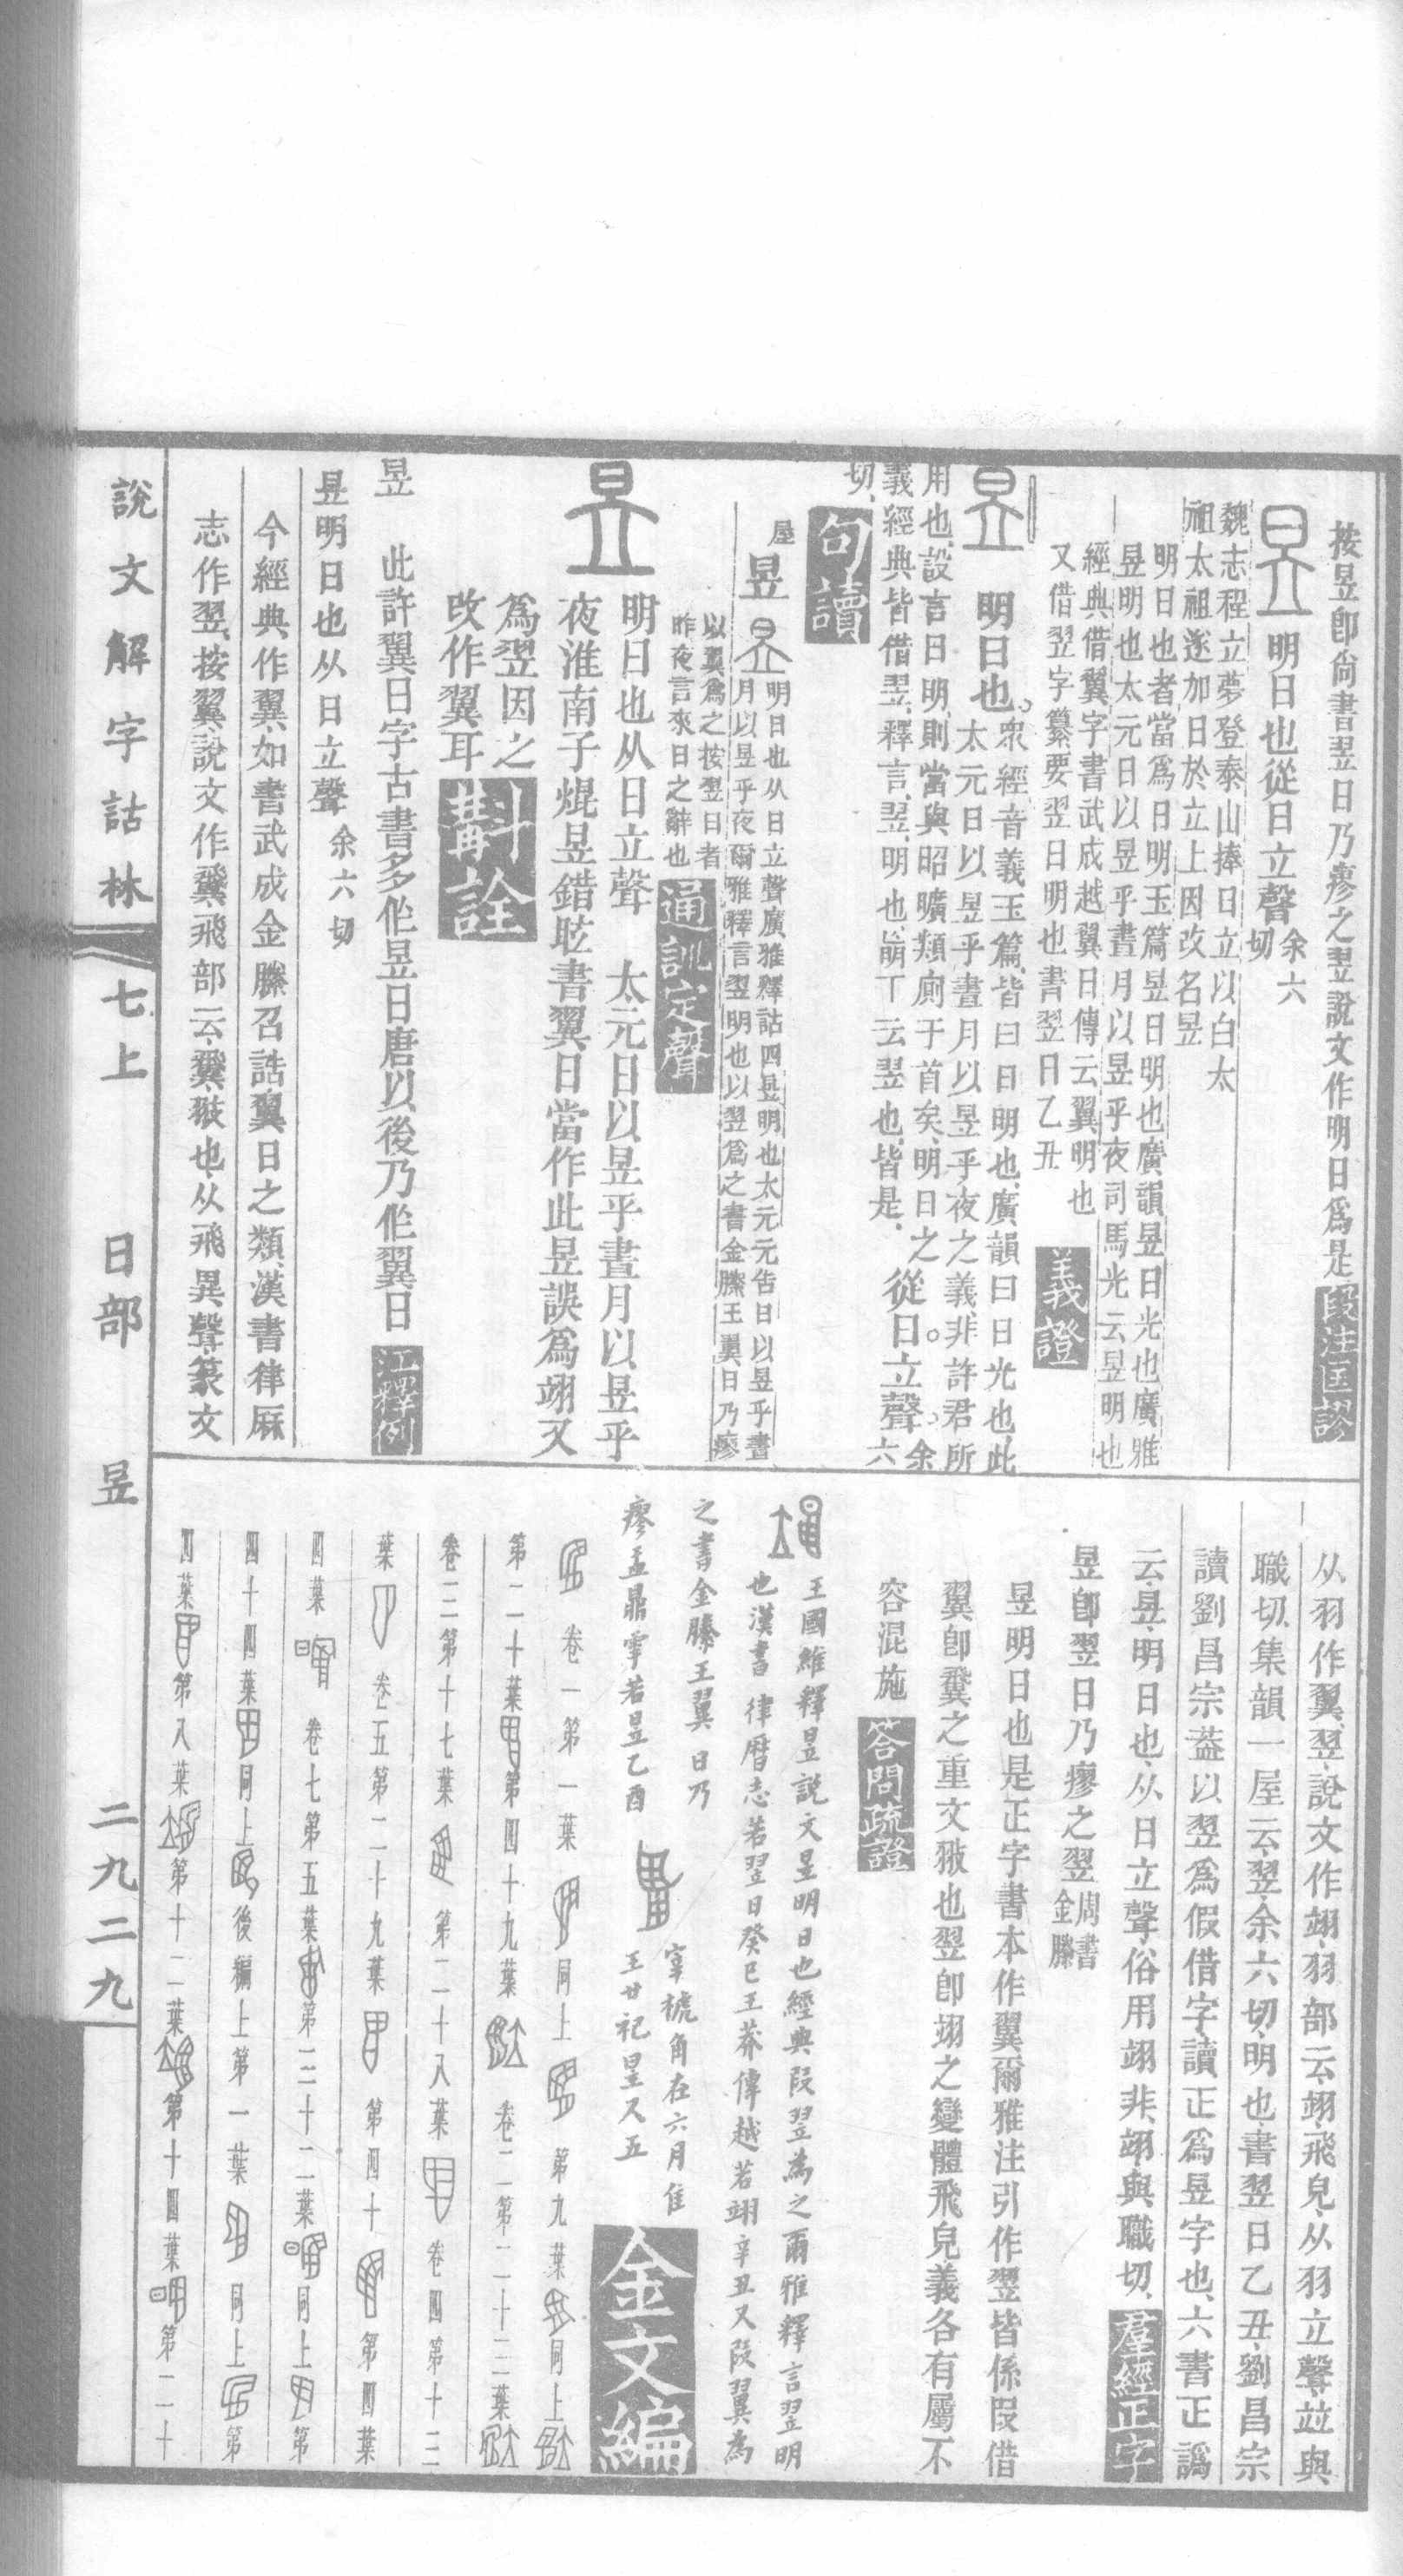 按昱卽尙書翌日乃瘳之翌說文作明日爲是段注匡謬
昱明日也從日立聲余六切
魏志程立夢登泰山捧日立以白太
祖太祖遂加日於立上因改名昱
明日也者當爲日明玉篇昱日明也廣韻昱日光也廣雅
昱明也太元日以昱乎晝月以昱乎夜司馬光云昱明也
經典借翼字書武成越翼日傳云翼明也
又借翌字纂要翌日明也書翌日乙丑義證
昱明日也衆經音義玉篇皆曰日明也廣韻曰日光也此
太元日以昱乎晝月以昱乎夜之義非許君所
用也設言日明則當與昭曠類廁于首矣明日之
義經典皆借翌釋言翌明也
云翌也皆是從日立聲余六
切句讀
屋昱昱明日也从日立聲廣雅釋詁四昱明也太元元告日以昱乎晝
月以昱乎夜爾雅釋言翌明也以翌爲之書金縢王翼日乃瘳
以翼爲之按翌日者
昨夜言來日之辭也通訓定聲
昱明日也从日立聲太元日以昱乎晝月以昱乎
夜淮南子焜昱錯眩書翼日當作此昱誤爲翊又
爲翌因之
改作翼耳斠詮
昱此許翼日字古書多作昱日唐以後乃作翼日江釋例
昱明日也从日立聲余六切
今經典作翼如書武成金縢召誥翼日之類漢書律厤
志作翌按翼說文作䬢飛部云䬢翄也从飛異聲篆文
从羽作翼翌說文作翊羽部云翊飛皃从羽立聲竝與
職切集韻一屋云翌余六切明也書翌日乙丑劉昌宗
讀劉昌宗蓋以翌爲假借字讀正爲昱字也六書正譌
云昱明日也从日立聲俗用翊非翊與職切羣經正字
昱卽翌日乃瘳之翌周書金縢
昱明日也是正字書本作翼爾雅注引作翌皆係叚借
翼卽䬢之重文翄也翌卽翊之變體飛皃義各有屬不
容混施答問疏證
王國維釋昱說文昱明日也經典叚翌為之爾雅釋言翌明
也漢書律曆志若翌日癸巳王莽傳越若翊辛丑又叚翼為
之書金縢王翼日乃
瘳盂鼎雩若昱乙酉
宰椃角在六月隹
王廿祀昱又五金文編
卷一第一葉同上第九葉同上
第二十葉第四十九葉卷二第二十三葉
卷三第十七葉第二十八葉卷四第十三
葉卷五第二十九葉第四十第四葉
四葉卷七第五葉第三十二葉同上第
四十四葉同上後編上第一葉同上第
四葉第八葉第十二葉第十四葉第二十
說文解字詁林七上日部昱二九二九